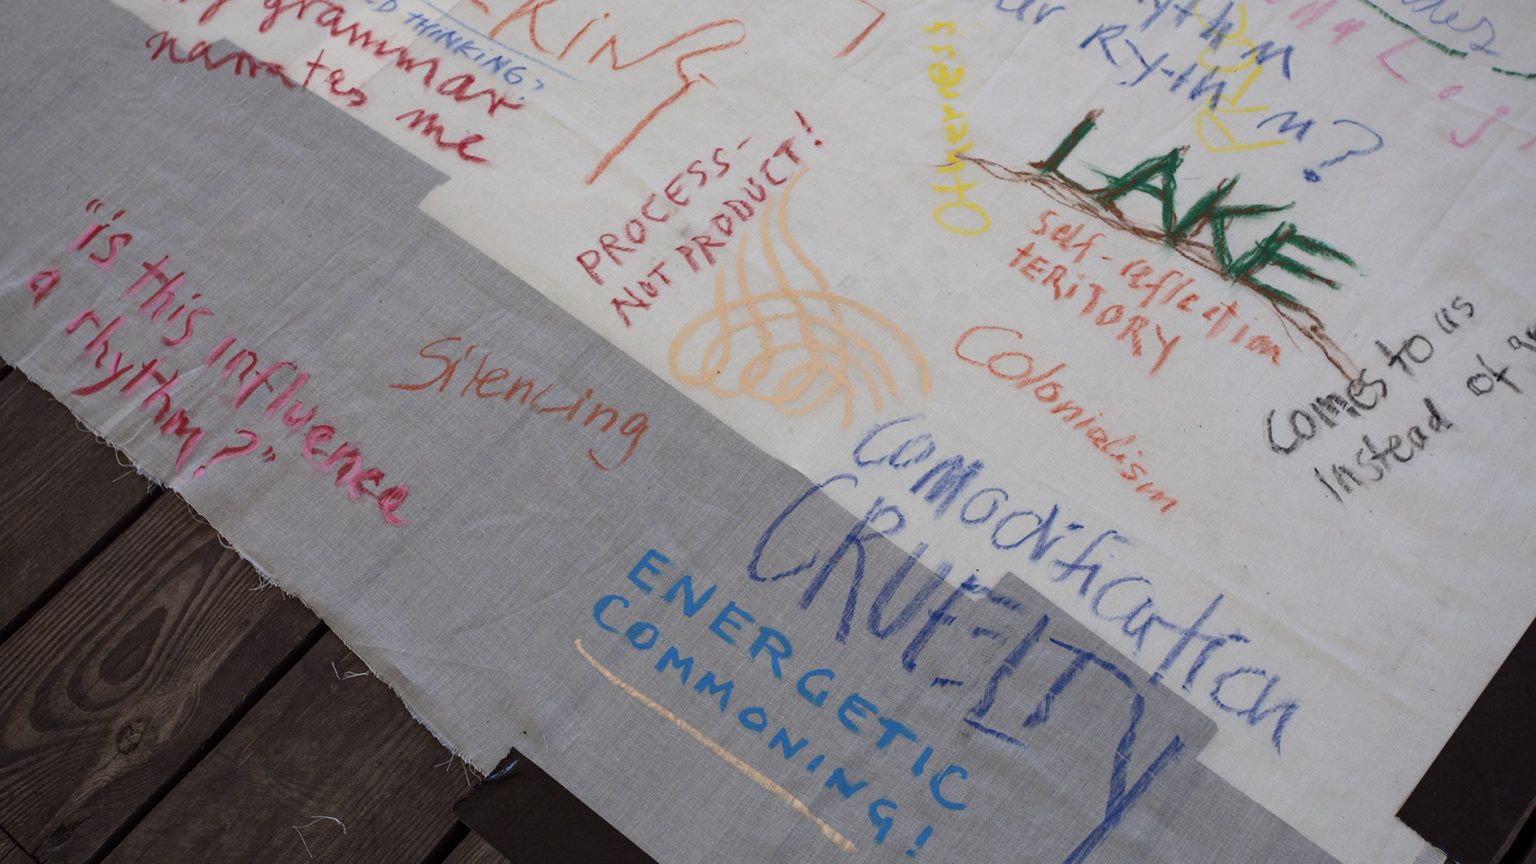 grammar
narrates me
THINKING?
KING
Otherness
Rhythm
RY-IN
n?
LAKE
self-reflection
TERITORY
PROCESS-
NOT PRODUCT!
"is this influence
a rhythm?"
Silencing
Colonialism
comes to us
instead of
Comodification
CRUELTY
ENERGETIC
COMMONING!